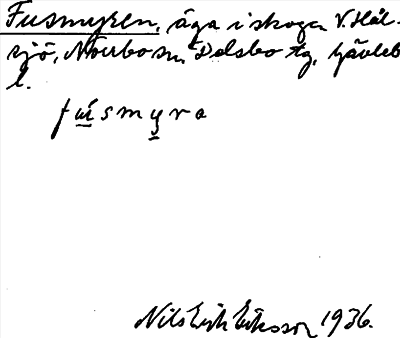 Fusmyren, äga i skogen V. Häl-
sjö, Norrbo sn, Delsbo tg, Gävleb
l.
fúsmyra
Nils Erik Eriksson 1936.